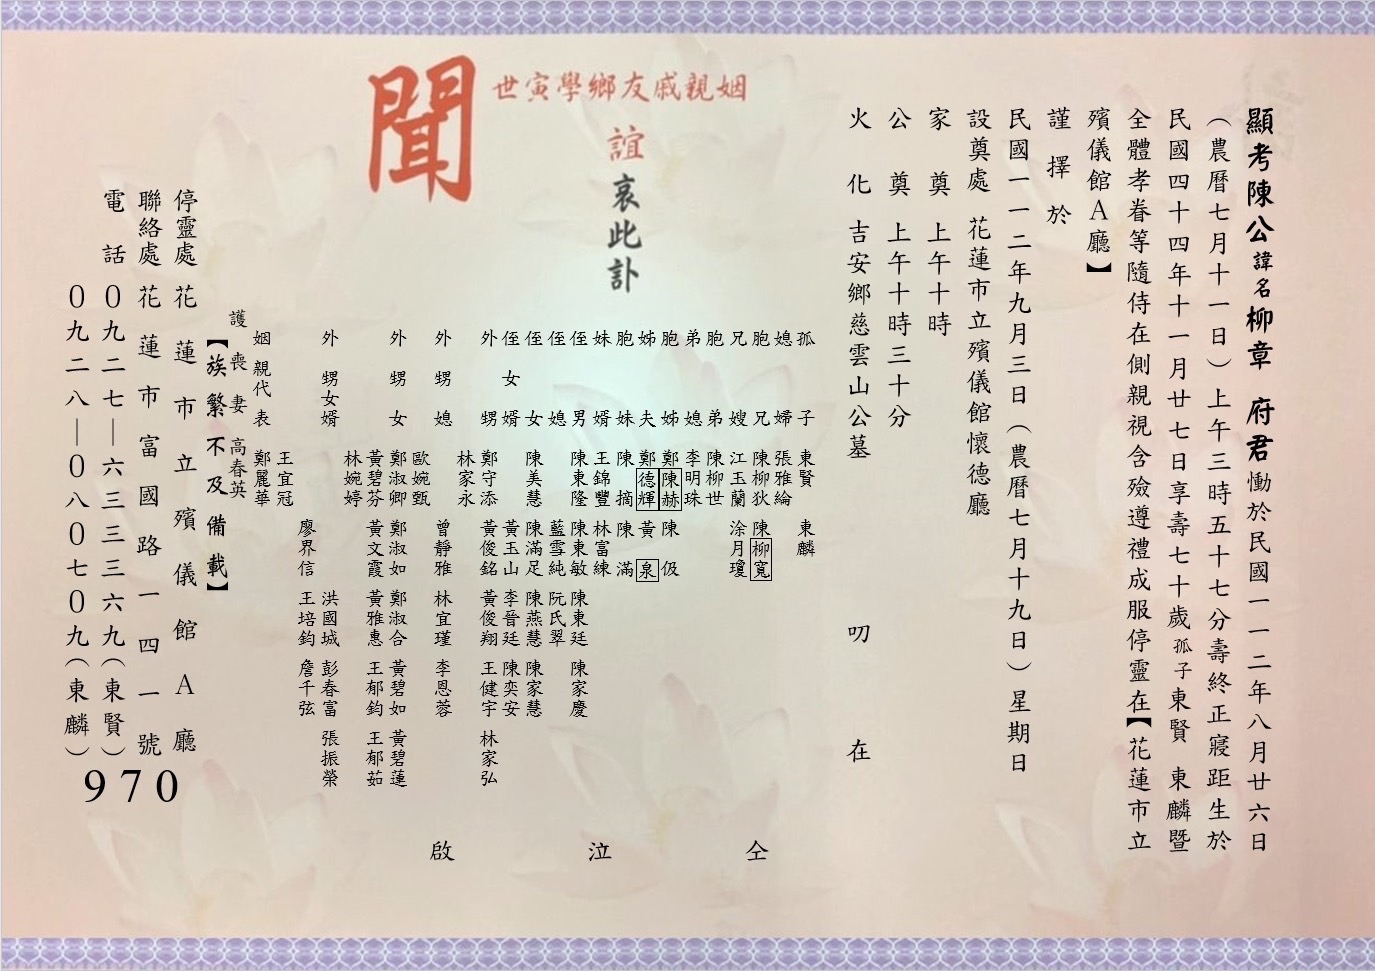 顯考陳公諱名柳章　府君慟於民國一一二年八月廿六日
（農曆七月十一日）上午三時五十七分壽終正寢距生於
民國四十四年十一月廿七日享壽七十歲孤子東賢　東麟暨
全體孝眷等隨侍在側親視含殮遵禮成服停靈在【花蓮市立
殯儀館Ａ廳】
謹擇於
民國一一二年九月三日（農曆七月十九日）星期日
設奠處　花蓮市立殯儀館懷德廳
家奠　上午十時
公奠　上午十時三十分
火化　吉安鄉慈雲山公墓
叨在
姻親戚友鄉學寅世
誼哀此訃
聞
孤子　東賢　東麟
媳婦　張雅綸
胞兄　陳柳狄　陳柳寬
兄嫂　江玉蘭　涂月瓊
胞弟　陳柳世
弟媳　李明珠
胞姊　鄭陳赫　陳伋
姊夫　鄭德輝　黃泉
胞妹　陳摘　陳滿
妹婿　王錦豐　林富練
侄男　陳東隆　陳東敏　陳東廷　陳家慶
侄媳　藍雪純　阮氏翠
侄女　陳美慧　陳滿足　陳燕慧　陳家慧
侄女婿　黃玉山　李晉廷　陳奕安
外甥　鄭守添　黃俊銘　黃俊翔　王健宇　林家弘
林家永
外甥媳　曾靜雅　林宜瑾　李恩蓉
歐婉甄
外甥女　鄭淑卿　鄭淑如　鄭淑合　黃碧如　黃碧蓮
黃碧芬　黃文霞　黃雅惠　王郁鈞　王郁茹
林婉婷
外甥女婿　洪國城　彭春富　張振榮
廖界信　王培鈞　詹千弦
王宜冠
姻親代表　鄭麗華
護喪妻　高春英
仝泣啟
【族繁不及備載】
停靈處　花蓮市立殯儀館Ａ廳
聯絡處　花蓮市富國路一四一號
電話　０九二七—六三三三六九（東賢）
０九二八—０八０七０九（東麟）
970